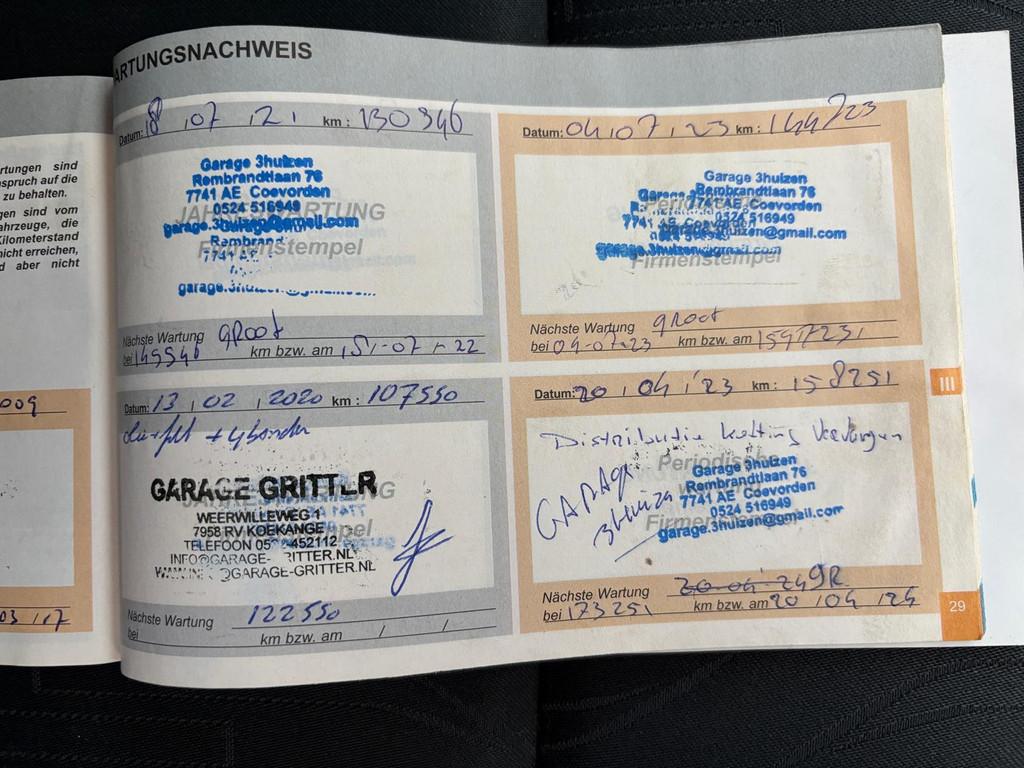 ARTUNGSNACHWEIS
rtungen sind
nspruch auf die
zu behalten.
gen sind vom
ahrzeuge, die
Kilometerstand
nicht erreichen,
d aber nicht
009
03 17
Datum: 18 07 21 km: 130346
Garage 3huizen
Rembrandtlaan 76
7741 AE Coevorden
0524 516949
JAHRESWARTUNG
garage.3huizen@gmail.com
Rembrand
Firmenstempel
7741 AE
Nächste Wartung groot
bei 145546 km bzw. am 151-07 1-22
Datum: 13 02 2020 km: 107550
GARAGE GRITTER
WEERWILLEWEG 1
7958 RV KOEKANGE
TELEFOON 05 452112
INFO@GARAGE-GRITTER.NL
@GARAGE-GRITTER.NL
Nächste Wartung 122550
bei km bzw. am / /
Datum: 04 07 23 km: 144723
Garage 3huizen
Rembrandtlaan 76
7741 AE Coevorden
0524 516949
garage.3huizen@gmail.com
garage.3huizen@gmail.com
Firmenstempel
Nächste Wartung groot
bei 04-07-23 km bzw. am 1597231
Datum: 20 04 '23 km: 158251
Distributie ketting Vervangen
Periodische
GARAGE
3huizen
Garage 3huizen
Rembrandtlaan 76
7741 AE Coevorden
0524 516949
Firmenstempel
garage.3huizen@gmail.com
Nächste Wartung 20-04-24 GR
bei 173251 km bzw. am 20 04 24
III
29